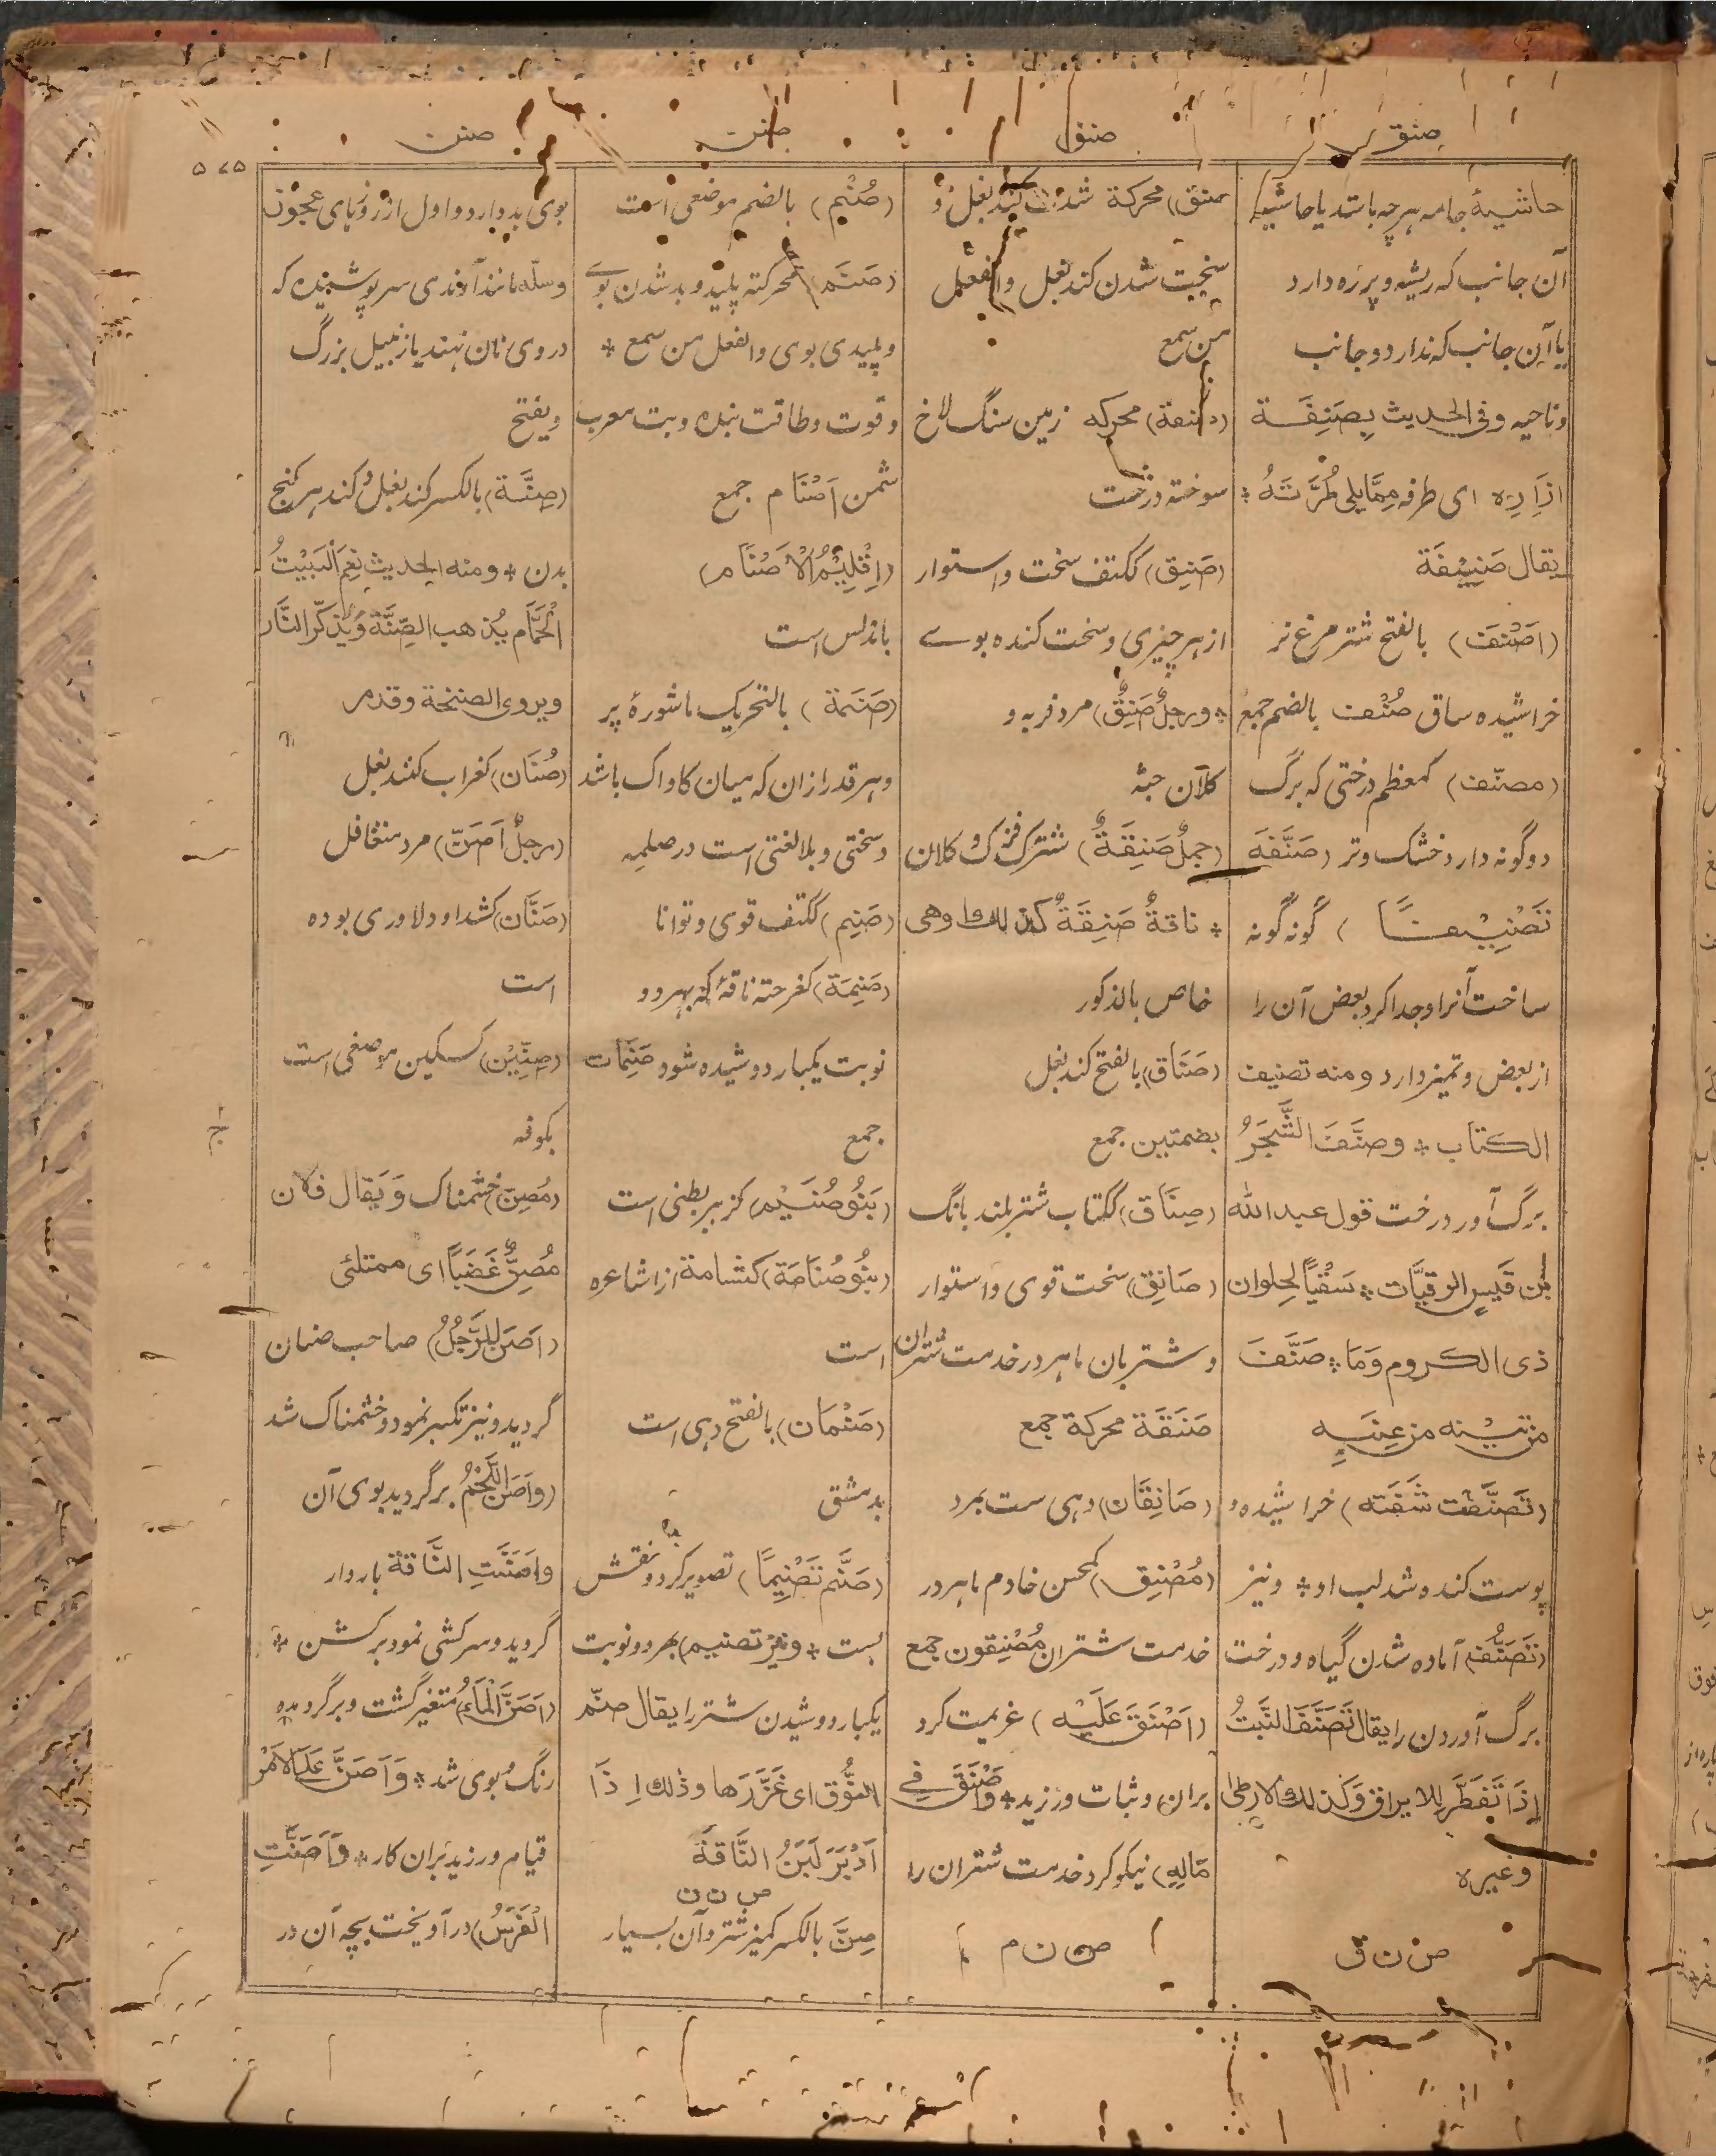 صنق
صنق
صنن
صنن
۵۷۵
حاشیهٔ جامه هرچه باشد یا حاشیه
آن جانب که ریشه و پرزه دارد
یا آن جانب که ندارد و جانب
و ناحیه و فی الحدیث بِصَنِفَة
اِزَارِه ای طرفه مِمَّا یلی طُرَّتَهُ *
یقال صَنِیْفَة
(اَصْنَف) بالفتح شتر مرغ نر
خراشیده ساق صُنْف بالضم جمع
(مصنّف) کمعظم درختی که برگ
دو گونه دارد خشک و تر (صَنَّفَه
تَصْنِیْفًا) گونه گونه
ساخت آنرا و جدا کرد بعض آن را
از بعض و تمیز داد و منه تصنیف
الکتاب * و صنَّفَ الشَّجَرُ
برگ آورد درخت قول عبدالله
بن قَیسِ الرقیَّات * سَقْیًا لِحلوان
ذی الکروم وَمَا * صَنَّفَ
من تِیْنه من عِنَبِه
(تَصَنَّفَت شَفَته) خراشیده و
پوست کنده شد لب او * و نیز
(تَصَنُّف) آماده شدن گیاه و درخت
برگ آوردن را یقال تَصَنَّفَ النَّبتُ
اِذَا تَفَطَّرَ لِلایراق وَکَذلك الارطیٰ
وغیره
ص ن ق
صنق) محرکة شدت کند بغل و
سخت شدن کند بغل والفعل
من سمع
(صنقة) محرکه زمین سنگ لاخ
سوخته درخت
(صَنِق) ککتف سخت و استوار
از هر چیزی و سخت کنده بوے
* و رجلٌ صَنِقٌ) مرد فربه و
کلان جثه
(جملٌ صَنِقَةٌ) شترک فزک و کلان
* ناقةٌ صَنِقَةٌ کذلك اوهی
خاص بالذکور
(صَنَاق) بالفتح کند بغل
بضمتین جمع
(صِنَاق) ککتاب شتر بلند بانگ
(صَانِق) سخت قوی و استوار
و شتربان ماهر در خدمت شتران
صَنَقَة محرکة جمع
(صَانِقَان) دهی ست بمرد
(مُصْنِق) کمحسن خادم ماهر در
خدمت شتران مُصْنِقون جمع
(اَصْنَقَ عَلَیْه) عزیمت کرد
بران و ثبات ورزید * وَاَصْنَقَ فے
مَالِهِ) نیکو کرد خدمت شتران را
ص ن م
(صُنْم) بالضم موضعی است
(صَنَم) محرکته پلید و بد شدن بوے
و پلیدی بوی والفعل من سمع *
و قوت و طاقت بنده و بت معرب
شمن اَصْنَام جمع
(اِقْلِیْمُ الْاَصْنَام)
باندلس است
(صَنَمَة) بالتحریك ماشورهٔ پر
و هر قدر ازان که میان کاواک باشد
و سختی و بلا لغتی است در صلمه
(صَنِم) ککتف قوی و توانا
(صَنِمَة) کفرحته ناقهٔ که بهر دو
نوبت یکبار دوشیده شود صَنِمَات
جمع
(بَنُو صُنَیْم) کزبیر بطنی است
(بنُو صُنَامَة) کثمامة از اشاعره
است
(صَنْمَان) بالفتح دهی است
بدمشق
(صَنَّم تَصْنِیمًا) تصویر کرد و نقش
بست * و نیز تصنیم) بهر دو نوبت
یکبار دوشیدن شتر را یقال صنّم
النُّوق ای غَرَّرَها و ذلك اِذَا
اَدْبَرَ لَبَنُ النَّاقَة
ص ن ن
صِنَّ بالکسر کمیز شتر و آن بسیار
بوی بد دارد و اول از روزهای عجوز
و سلّه مانند آوندی سرپوشیده که
در وی نان نهند یا زنبیل بزرگ
ویفتح
(صِنَّة) بالکسر کند بغل و کند هر کنج
بدن * و منه الحدیث نِعْمَ الْبَیْتُ
الْحَمَّام یُذهب الصِّنَّة وَیُذکّر النَّار
ویروی الصنخة وقد مر
(صُنَان) کغراب کند بغل
(رجلٌ اَصَنّ) مرد متغافل
(صَنَّان) کشداد دلاوری بوده
است
(صِنِّیْن) کسکین موضعی است
بکوفه
(مُصِنّ) خشمناک وَ یقال فلان
مُصِنٌّ غَضَبًا ای ممتلئی
(اَصَنَّ الرَّجُلُ) صاحب صنان
گردید و نیز تکبر نمود و خشمناک شد
(و اَصَنَّ اللَّحْمُ) برگردید بوی آن
و اَصَنَّتِ النَّاقة باردار
گردید و سرکشی نمود بر کشن *
(اَصَنَّ الْمَاءُ) متغیر گشت و برگردیده
رنگ و بوی شد * وَ اَصَنَّ عَلَی الاَمْر
قیام ورزید بران کار * وَ اَصَنَّتِ
الْفَرَسُ) در آویخت بچه آن در